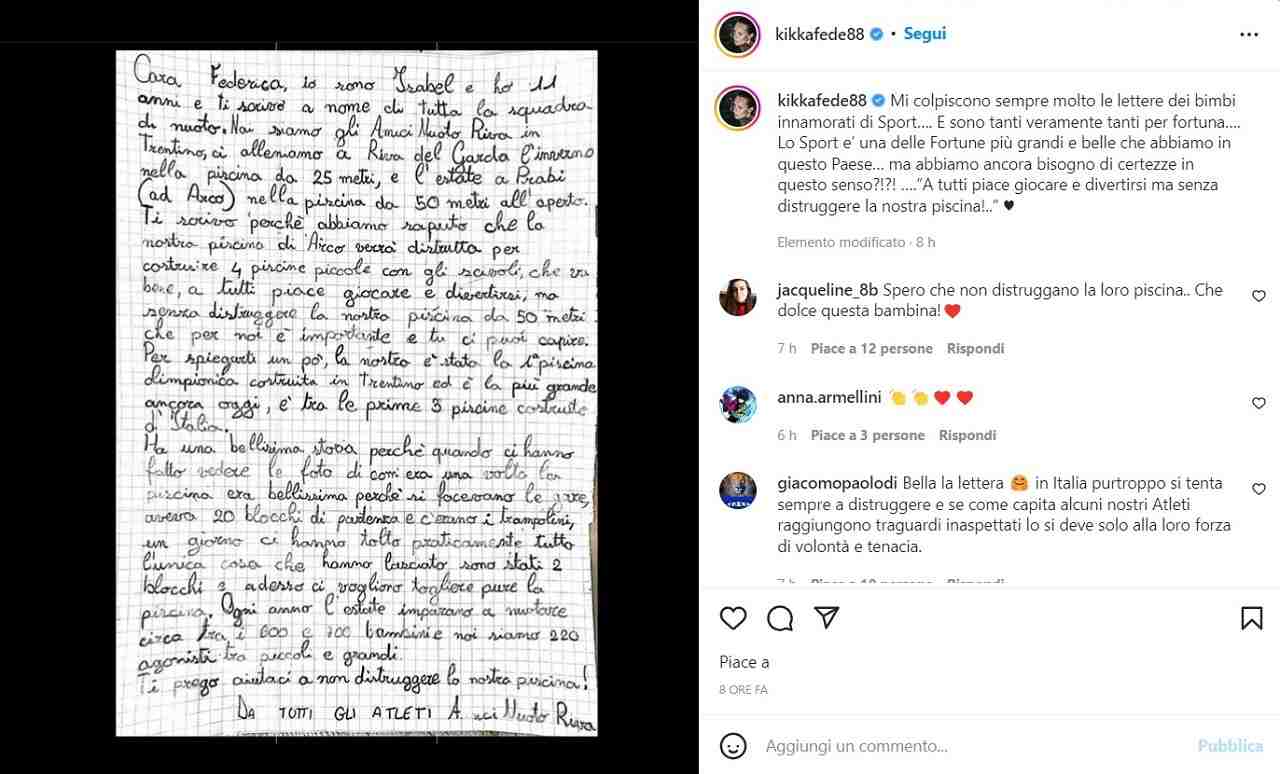 Cara Federica, io sono Isabel e ho 11
anni e ti scrivo a nome di tutta la squadra
di nuoto. Noi siamo gli Amici Nuoto Riva in
Trentino, ci alleniamo a Riva del Garda l'inverno
nella piscina da 25 metri, e l'estate a Prabi
(ad Arco) nella piscina da 50 metri all'aperto.
Ti scrivo perchè abbiamo saputo che la
nostra piscina di Arco verrà distrutta per
costruire 4 piscine piccole con gli scivoli, che va
bene, a tutti piace giocare e divertirsi, ma
senza distruggere la nostra piscina da 50 metri
che per noi è importante e tu ci puoi capire.
Per spiegarti un po', la nostra è stata la 1ª piscina
olimpionica costruita in Trentino ed è la più grande
ancora oggi, è tra le prime 3 piscine costruite
d'Italia.
Ha una bellissima storia perchè quando ci hanno
fatto vedere le foto di com'era una volta la
piscina era bellissima perchè si facevano le gare,
aveva 20 blocchi di partenza e c'erano i trampolini,
un giorno ci hanno tolto praticamente tutto
l'unica cosa che hanno lasciato sono stati 2
blocchi e adesso ci vogliono togliere pure la
piscina. Ogni anno l'estate imparano a nuotare
circa tra i 600 e 700 bambini e noi siamo 220
agonisti tra piccoli e grandi.
Ti prego aiutaci a non distruggere la nostra piscina!
DA TUTTI GLI ATLETI Nuoto Riva
kikkafede88 • Segui
kikkafede88 Mi colpiscono sempre molto le lettere dei bimbi
innamorati di Sport.... E sono tanti veramente tanti per fortuna....
Lo Sport e' una delle Fortune più grandi e belle che abbiamo in
questo Paese... ma abbiamo ancora bisogno di certezze in
questo senso?!?! ...."A tutti piace giocare e divertirsi ma senza
distruggere la nostra piscina!.." ♥
Elemento modificato · 8 h
jacqueline_8b Spero che non distruggano la loro piscina.. Che
dolce questa bambina!❤️
7 h Piace a 12 persone Rispondi
anna.armellini 👏👏❤️❤️
6 h Piace a 3 persone Rispondi
giacomopaolodi Bella la lettera 🤗 in Italia purtroppo si tenta
sempre a distruggere e se come capita alcuni nostri Atleti
raggiungono traguardi inaspettati lo si deve solo alla loro forza
di volontà e tenacia.
Piace a
8 ORE FA
Aggiungi un commento... Pubblica